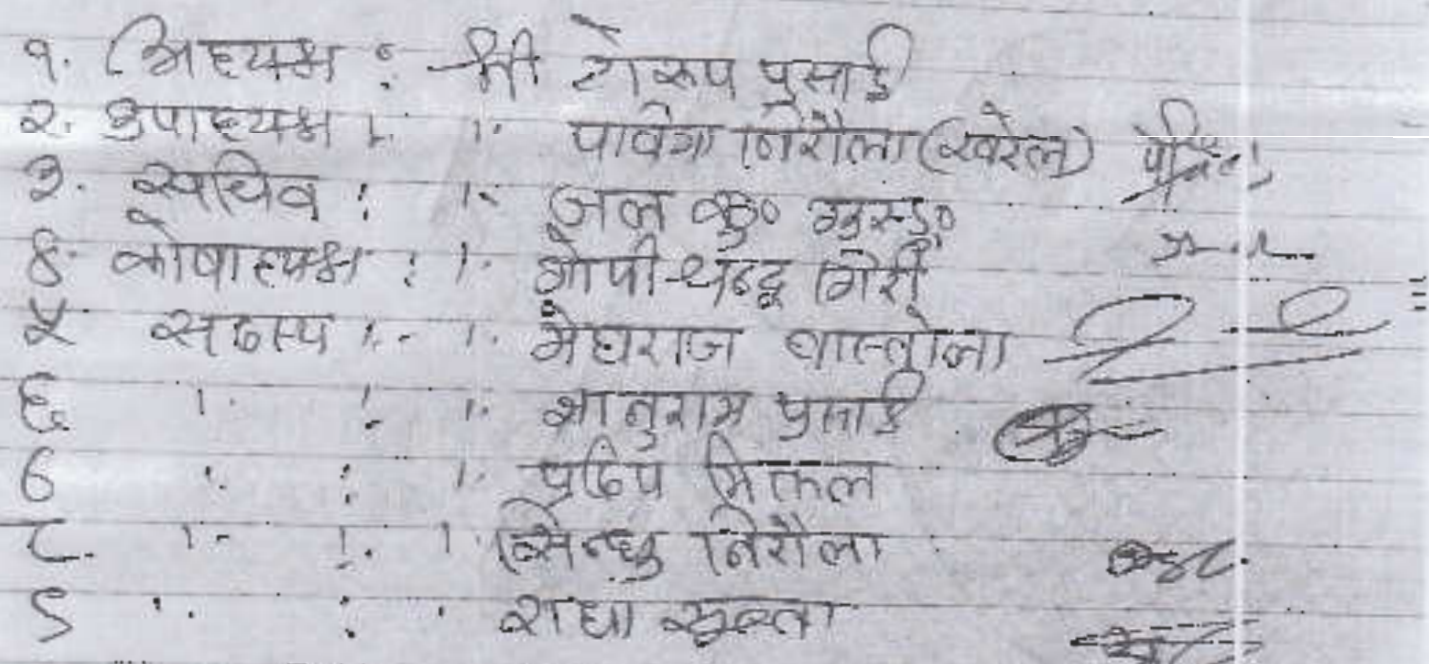 १. अध्यक्ष : श्री टेकरुप प्रसाई
२. उपाध्यक्ष : " पवित्रा निरौला (खरेल)
३. सचिव : " जल कु० गुरुङ
४. कोषाध्यक्ष : " गोपीचन्द्र गिरी
५ सदस्य : " मेघराज वास्तोला
६ " : " भानुराम प्रसाई
७ " : " प्रदिप मिक्तल
८. " : " सिन्धु निरौला
९ " : " राधा